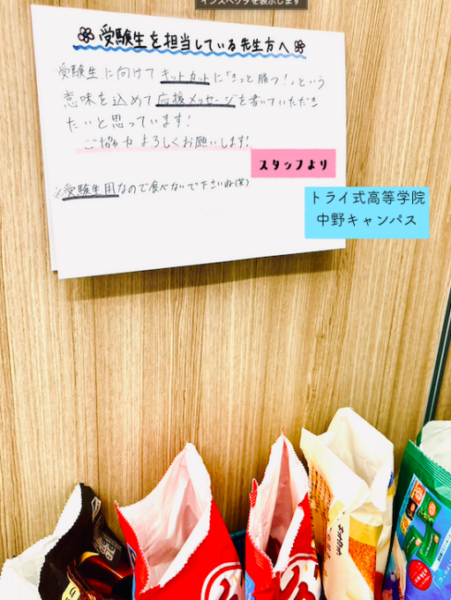 インスペクタを表示します
受験生を担当している先生方へ
受験生に向けてキットカットに「きっと勝つ!」という
意味を込めて応援メッセージを書いていただき
たいと思っています!
ご協力よろしくお願いします!
スタッフより
※受験生用なので食べないで下さいね(笑)
トライ式高等学院
中野キャンパス